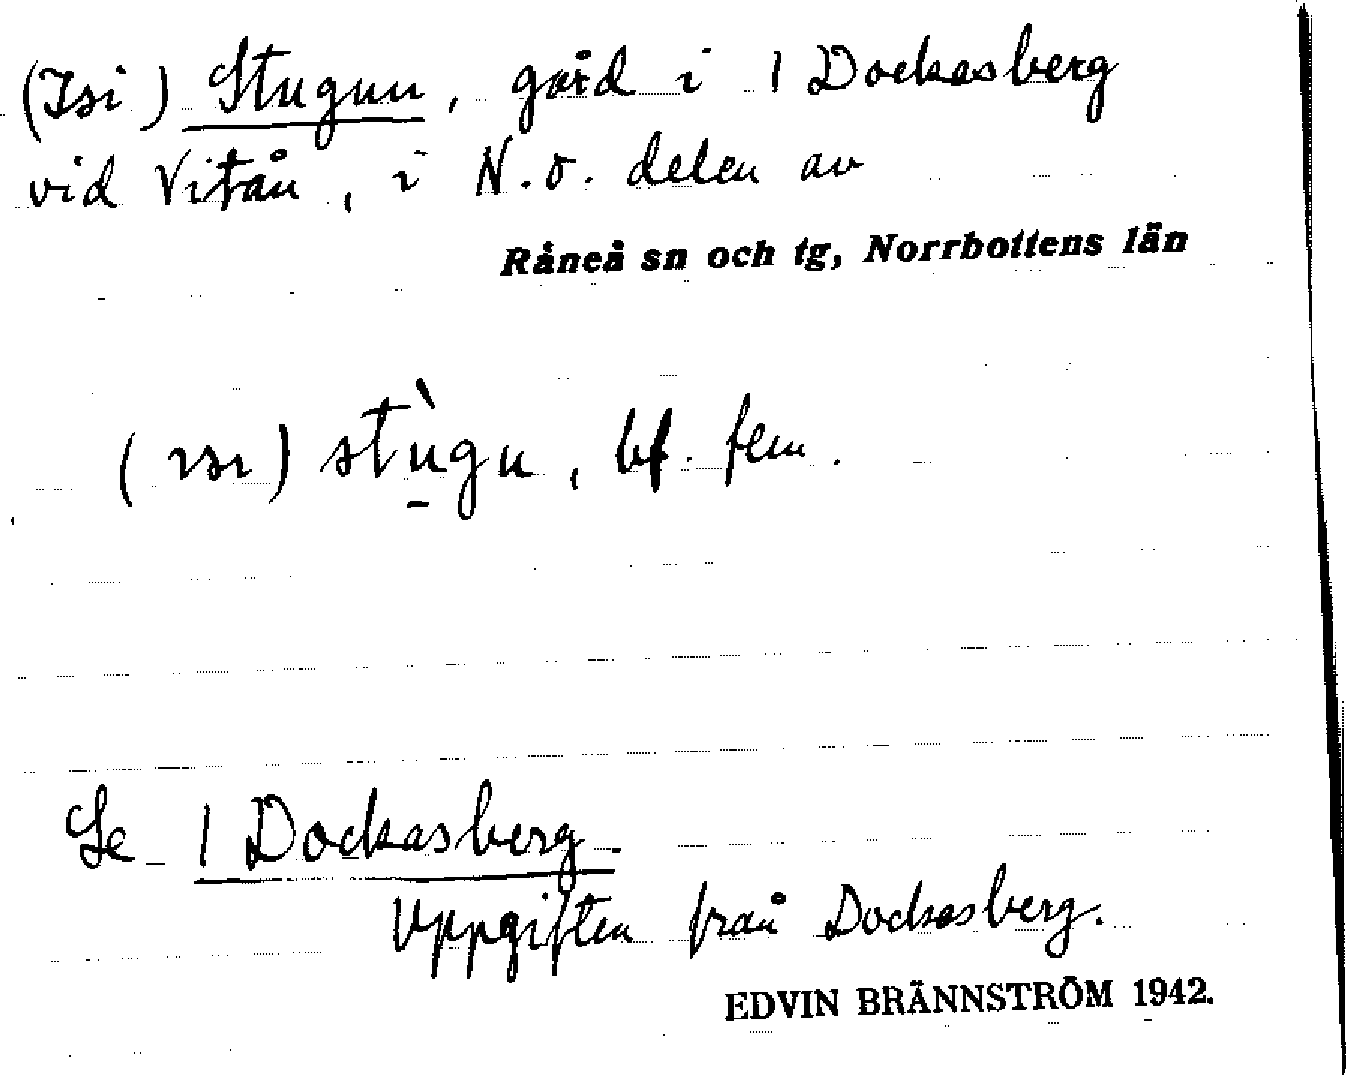 (Isi) Stugun, gård i 1 Dockasberg
vid Vitån, i N.O. delen av
Råneå sn och tg, Norrbottens län
(ısı) stù̠gu, bf. fem.
Se 1 Dockasberg.
Uppgiften från Dockasberg.
EDVIN BRÄNNSTRÖM 1942.